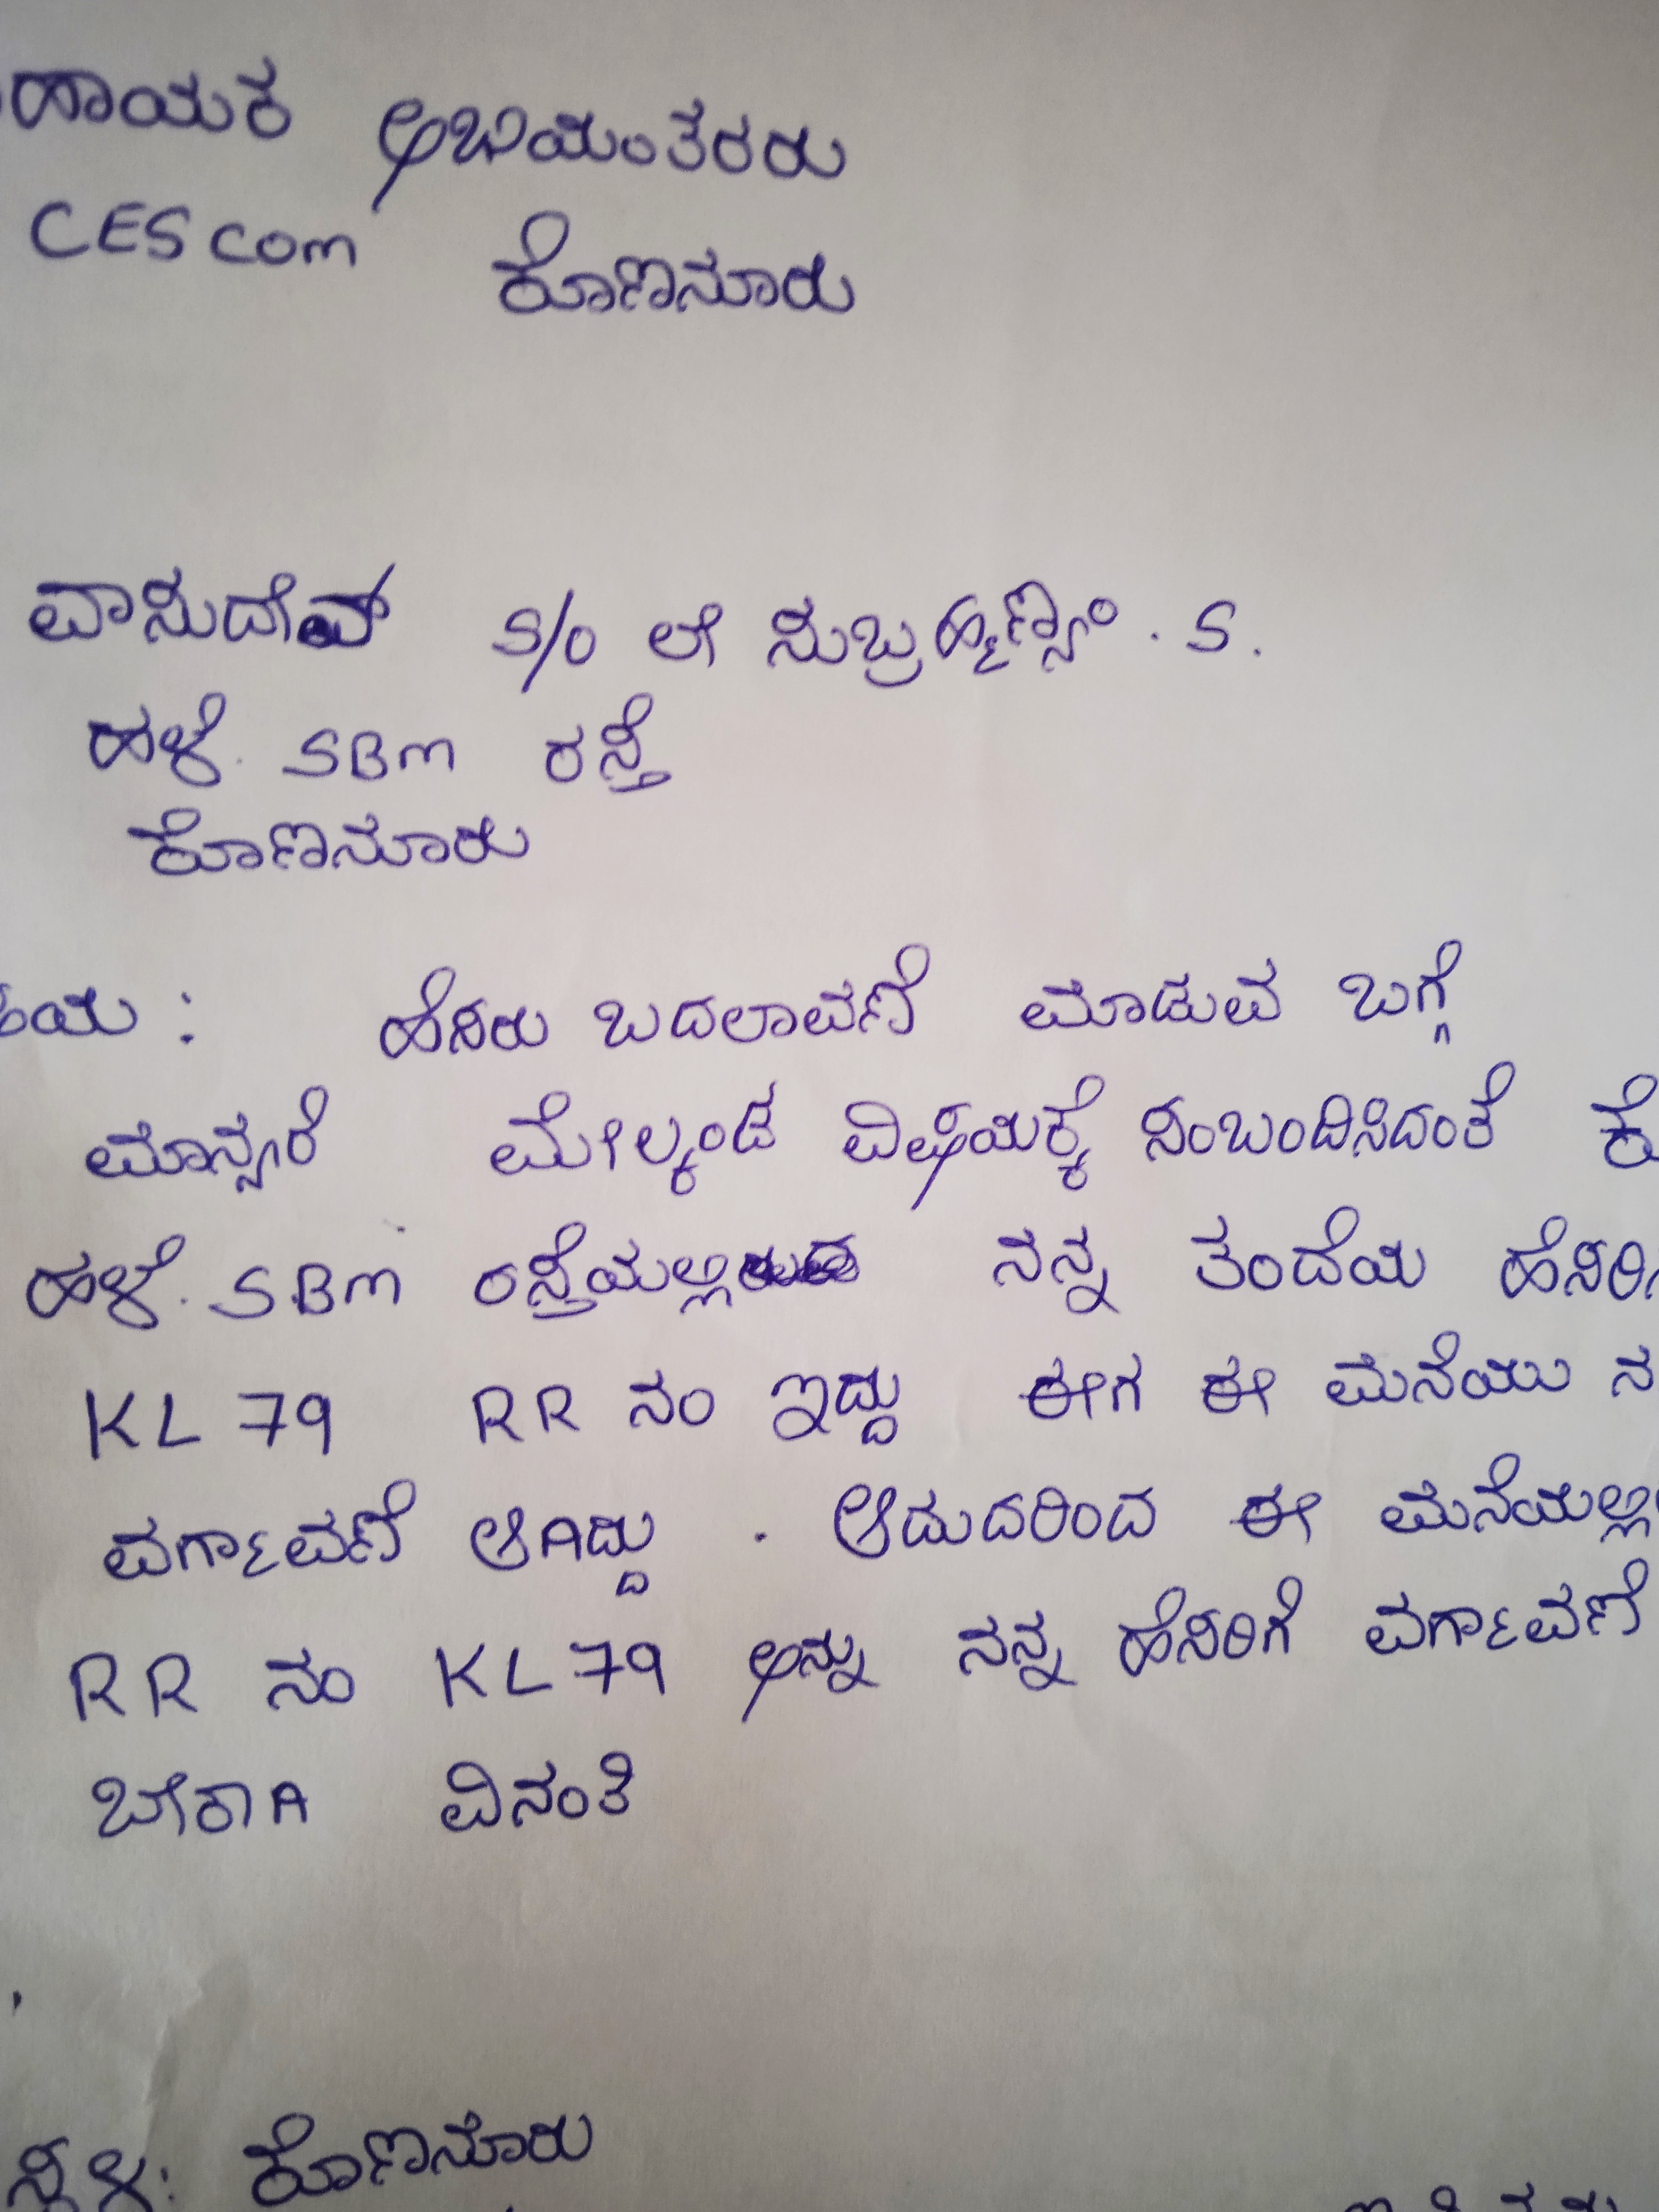 ಹಾಯಕ ಅಭಿಯಂತರರು
CESCom ಕೊಣನೂರು
ವಾಸುದೇವ್ S/O ಲೇ ಸುಬ್ರಹ್ಮಣ್ಯಂ . S .
ಹಳೆ. SBm ರಸ್ತೆ
ಕೊಣನೂರು
ಷಯ : ಹೆಸರು ಬದಲಾವಣೆ ಮಾಡುವ ಬಗ್ಗೆ
ಮಾನ್ಯರೆ ಮೇಲ್ಕಂಡ ವಿಷಯಕ್ಕೆ ಸಂಬಂದಿಸಿದಂತೆ ಕೊ
ಹಳೆ. SBm ರಸ್ತೆಯಲ್ಲಿರುವ ನನ್ನ ತಂದೆಯ ಹೆಸರಿ
KL 79 RR ನಂ ಇದ್ದು ಈಗ ಈ ಮನೆಯು ನ
ವರ್ಗಾವಣೆ ಆಗಿದ್ದು . ಆದುದರಿಂದ ಈ ಮನೆಯಲ್ಲಿ
RR ನಂ KL79 ಅನ್ನು ನನ್ನ ಹೆಸರಿಗೆ ವರ್ಗಾವಣೆ
ಬೇಕಾಗಿ ವಿನಂತಿ
ಸ್ಥಳ: ಕೊಣನೂರು